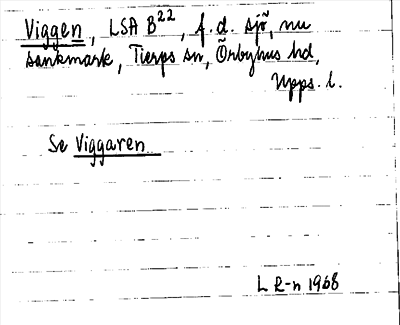 Viggen, LSA B²², f.d. sjö, nu
sankmark, Tierps sn, Örbyhus hd,
Upps. l.
Se Viggaren
L R-n 1968